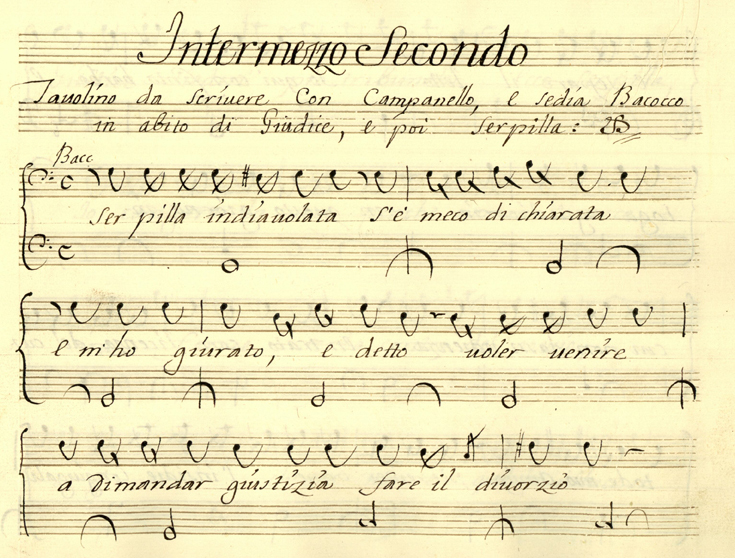 Intermezzo Secondo
Tavolino da scrivere Con Campanello, e sedia Bacocco
in abito di Giudice, e poi Serpilla:
Bacc
Ser pilla indiavolata s'è meco di chiarata
e m'ho giurato, e detto voler venire
a Dimandar giustizia fare il divorzio